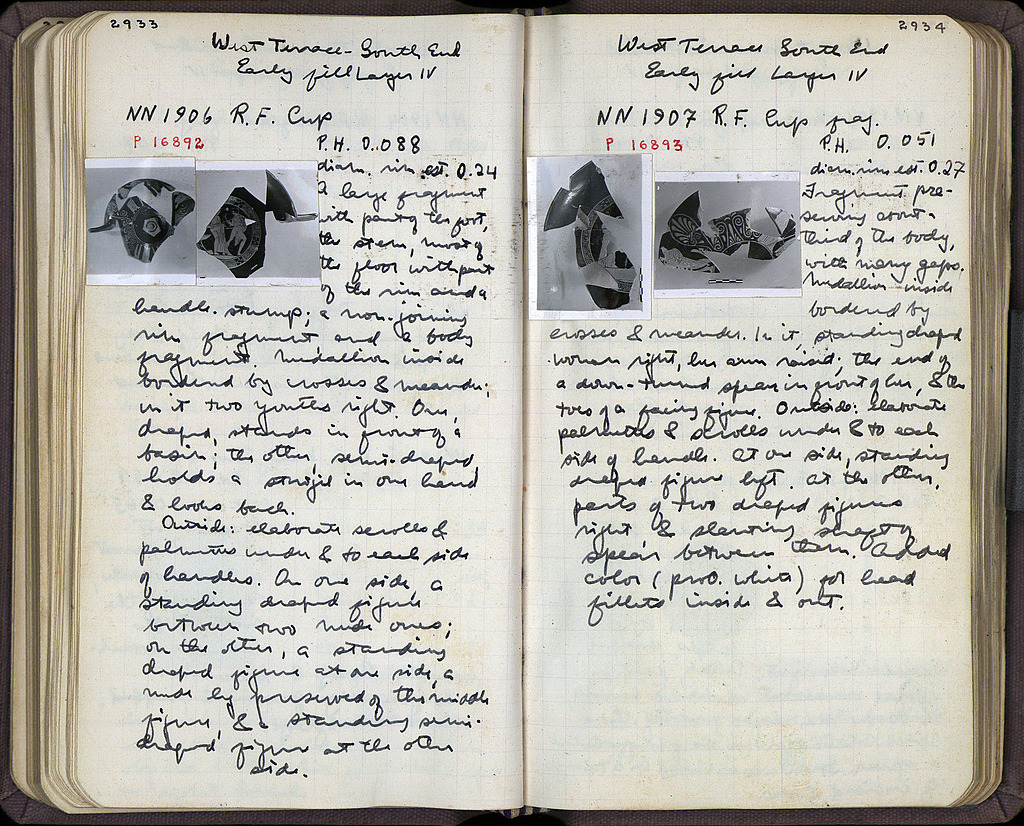 2933
West Terrace - South End
Early fill Layer IV
NN 1906 R.F. Cup
P 16892
P.H. 0.088
diam. rim est. 0.24
A large fragment
with part of the foot,
the stem, most of
the floor with part
of the rim and a
handle stump; a non-joining
rim fragment and a body
fragment. Medallion inside
bordered by crosses & meander;
in it two youths right. One,
draped, stands in front of a
basin; the other, semi-draped,
holds a strigil in one hand
& looks back.
Outside: elaborate scrolls &
palmettes under & to each side
of handles. On one side, a
standing draped figure
between two nude ones;
on the other, a standing
draped figure at one side, a
nude leg preserved of the middle
figure, & a standing semi-
draped figure at the other
side.
2934
West Terrace South End
Early fill Layer IV
NN 1907 R.F. Cup frag.
P 16893
P.H. 0.051
diam. rim est. 0.27
Fragment pre-
serving about
third of the body,
with many gaps.
Medallion inside
bordered by
crosses & meander. In it, standing draped
woman right, her arm raised; the end of
a down-turned spear in front of her, & the
toes of a facing figure. Outside: elaborate
palmettes & scrolls under & to each
side of handle. At one side, standing
draped figure left. At the other,
parts of two draped figures
right & slanting shaft of
spear between them. Added
color (prob. white) for head
fillets inside & out.